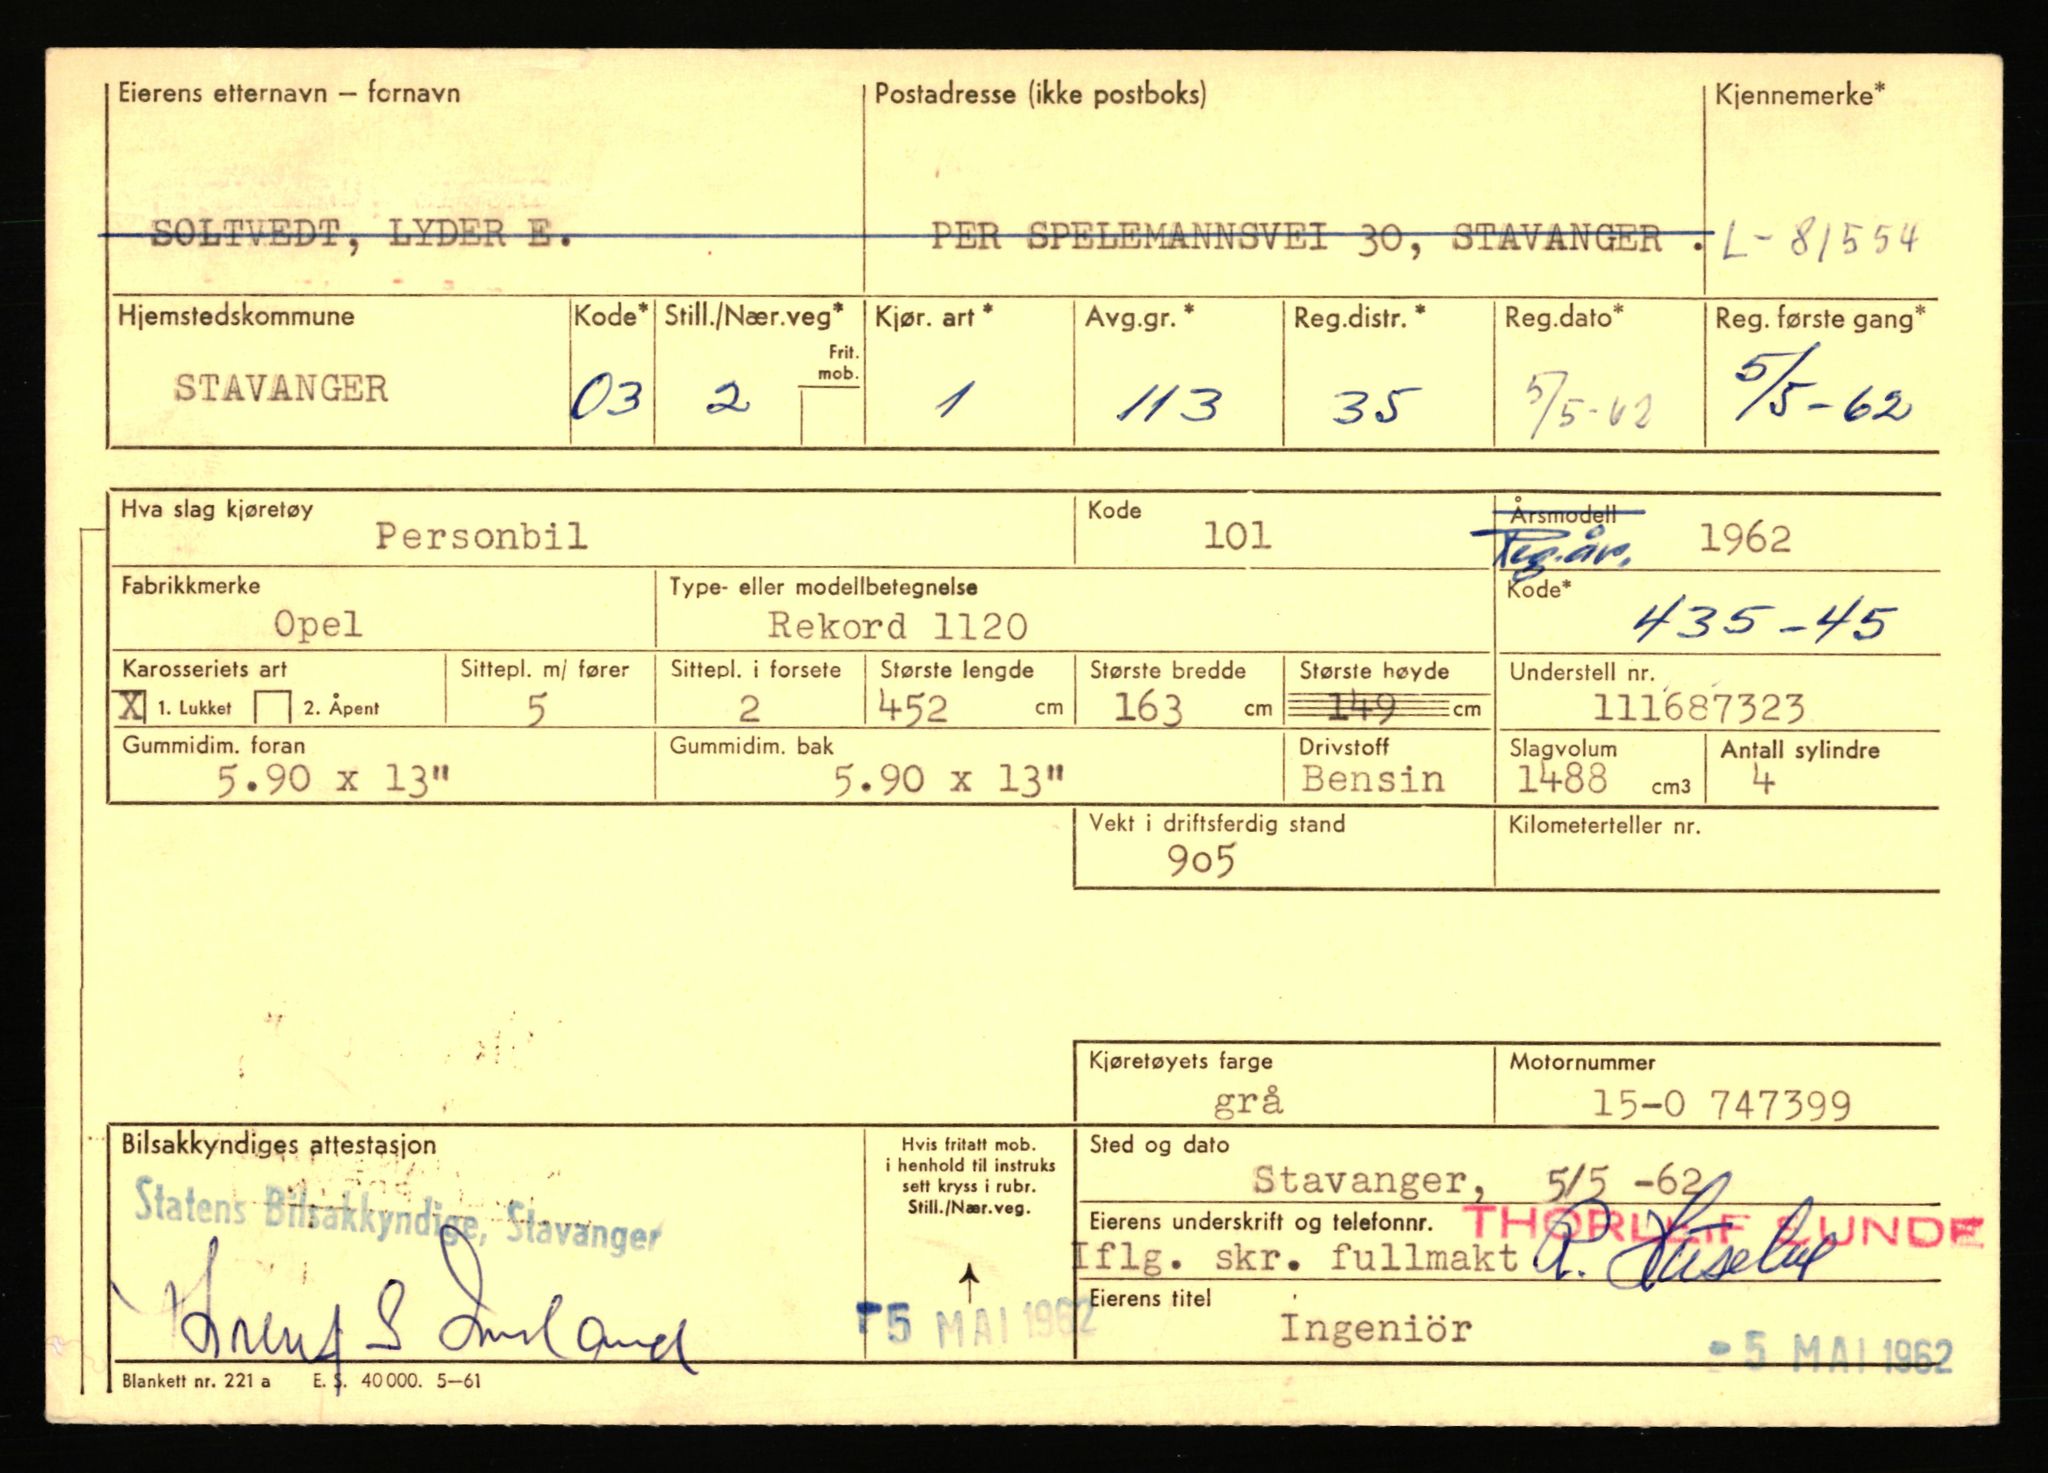 Eierens etternavn – fornavn Postadresse (ikke postboks) Kjennemerke*
SOLTVEDT, LYDER E. PER SPELEMANNSVEI 30, STAVANGER . L-81554
Hjemstedskommune Kode* Still./Nær.veg* Kjør. art* Avg.gr.* Reg.distr.* Reg.dato* Reg. første gang*
Frit. mob.
STAVANGER 03 2 1 113 35 5/5-62 5/5-62
Hva slag kjøretøy Kode Årsmodell
Personbil 101 Reg.år. 1962
Fabrikkmerke Type- eller modellbetegnelse Kode*
Opel Rekord 1120 435-45
Karosseriets art Sittepl. m/ fører Sittepl. i forsete Største lengde Største bredde Største høyde Understell nr.
X 1. Lukket 2. Åpent 5 2 452 cm 163 cm 149 cm 111687323
Gummidim. foran Gummidim. bak Drivstoff Slagvolum Antall sylindre
5.90 x 13" 5.90 x 13" Bensin 1488 cm3 4
Vekt i driftsferdig stand Kilometerteller nr.
905
Kjøretøyets farge Motornummer
grå 15-0 747399
Bilsakkyndiges attestasjon
Statens Bilsakkyndige, Stavanger
Hvis fritatt mob.
i henhold til instruks
sett kryss i rubr.
Still./Nær.veg.
5 MAI 1962
Sted og dato
Stavanger, 5/5 -62
Eierens underskrift og telefonnr. THORLEIF SUNDE
Iflg. skr. fullmakt R.
Eierens titel
Ingeniör
5 MAI 1962
Blankett nr. 221 a E. S. 40 000. 5–61